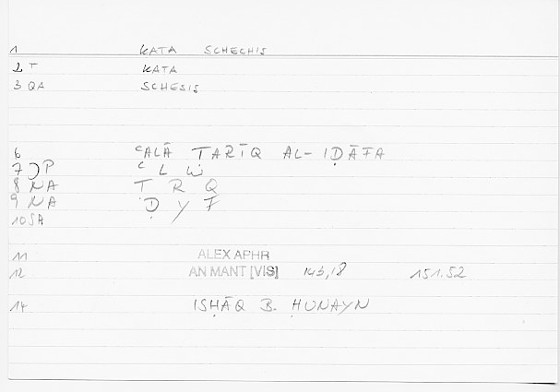 1 KATA SCHECHIS
2 T KATA
3 QA SCHESIS
6 ʿALĀ ṬARĪQ AL-IḌĀFA
7 P ʿ L W
8 NA Ṭ R Q
9 NA Ḍ Y F
10 SA
11 ALEX APHR
12 AN MANT [VIS] 143,18 151.52
14 ISḤĀQ B. ḤUNAYN